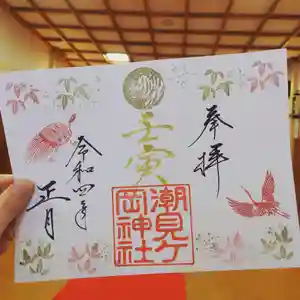 奉拝
壬寅
潮見ヶ
岡神社
令和四年
正月